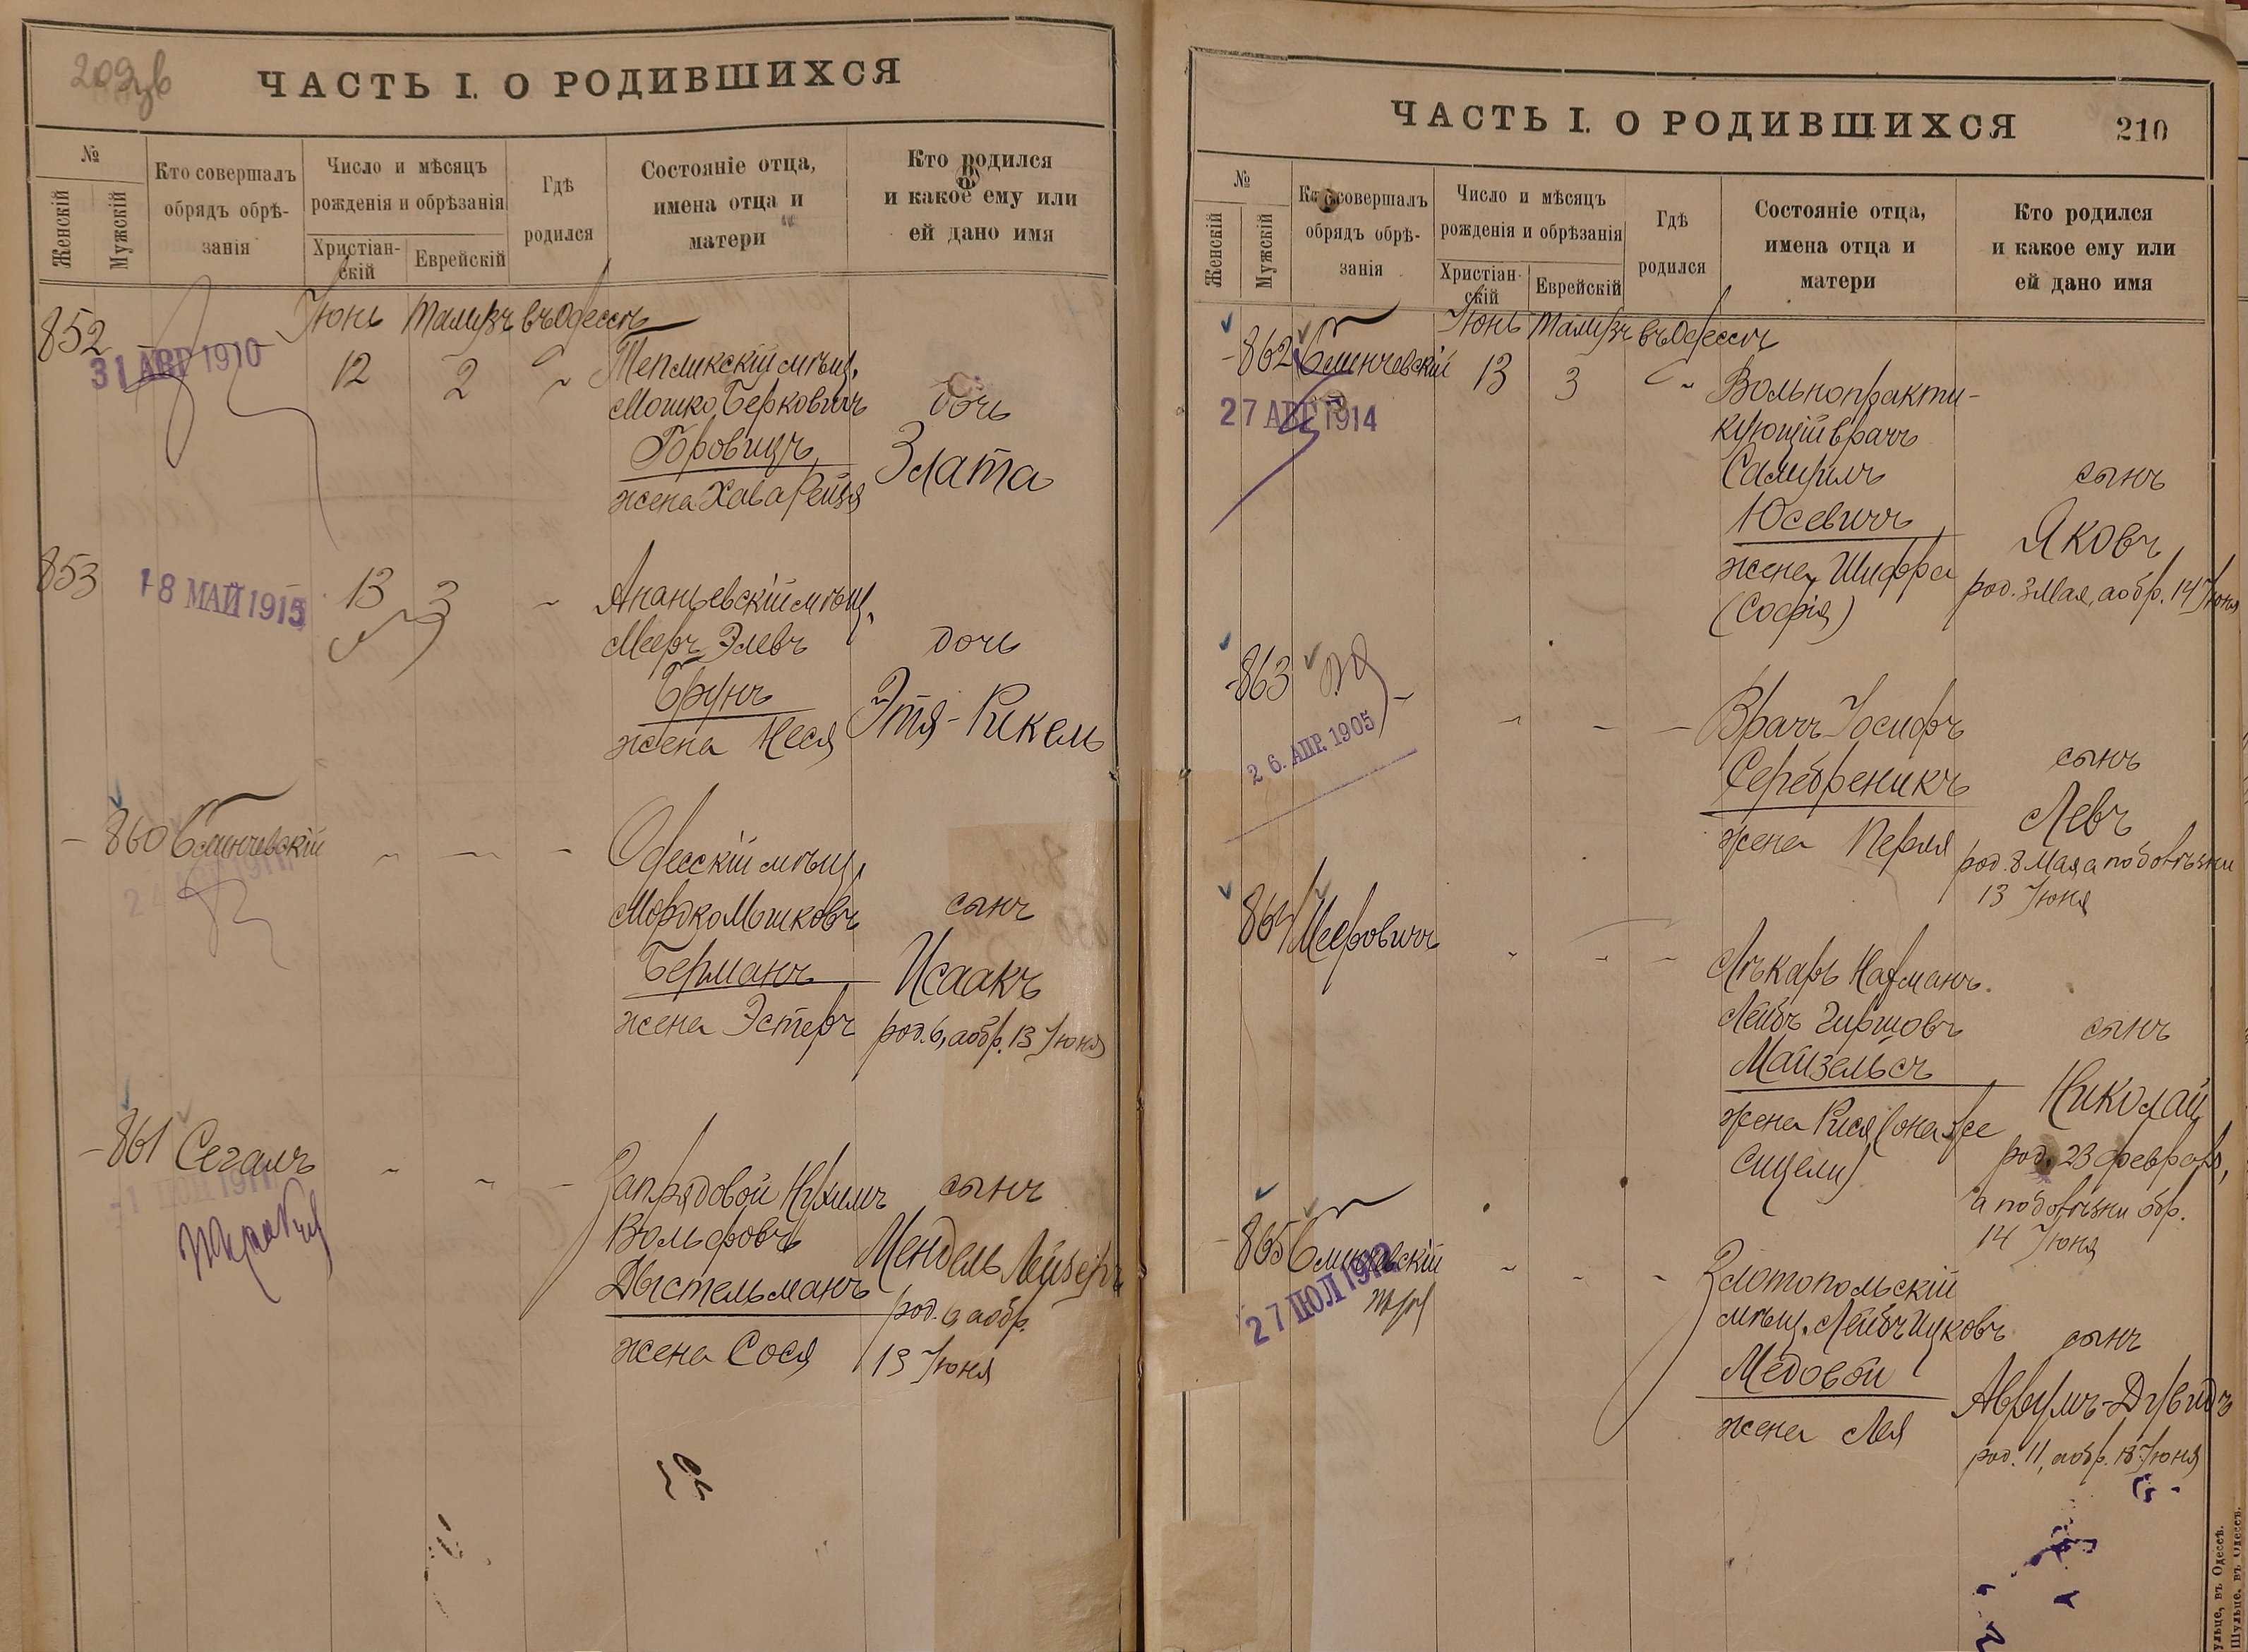 ЧАСТЬ I. О РОДИВШИХСЯ
№
Женскій
Мужскій
Кто совершалъ
обрядъ обрѣ-
занія
Число и мѣсяцъ
рожденія и обрѣзанія
Христіан-
скій
Еврейскій
Гдѣ
родился
Состояніе отца,
имена отца и
матери
Кто родился
и какое ему или
ей дано имя
Іюнь Тамузъ въ Одессѣ
852
31 АВГ 1910
12
2
Тепликскій мѣщ.
Мошко Берковичъ
жена Хава Рейзя
дочь
Злата
853
18 МАЙ 1915
13
3
Ананьевскій мѣщ.
Мееръ Элевъ
Брунъ
жена Неся
дочь
Этя-Рикель
860
Слинчевскій
Одесскій мѣщ.
Мордко Мошковъ
Берманъ
жена Эстеръ
сынъ
Исаакъ
род. 6, а обр. 13 Іюня
861
Сегалъ
Зап. рядовой Нухимъ
Вольфовъ
Дыстельманъ
жена Сося
сынъ
Мендель Лейзеръ
род. 6 а обр.
13 Іюня
ЧАСТЬ I. О РОДИВШИХСЯ
210
№
Женскій
Мужскій
Кто совершалъ
обрядъ обрѣ-
занія
Число и мѣсяцъ
рожденія и обрѣзанія
Христіан-
скій
Еврейскій
Гдѣ
родился
Состояніе отца,
имена отца и
матери
Кто родился
и какое ему или
ей дано имя
Іюнь Тамузъ въ Одессѣ
862
Слинчевскій
27 АВГ 1914
13
3
Вольнопракти-
кующій врачъ
Самуилъ
Юсевичъ
жена Шифра
(Софія)
сынъ
Яковъ
род. 3 Мая, а обр. 14 Іюня
863
26. АПР. 1905
Врачъ Іосифъ
Серебреникъ
жена Перля
сынъ
Левъ
род. 8 Мая а по болѣзни
13 Іюня
864
Мееровичъ
Лѣкарь Нахманъ
Лейбъ Гиршовъ
Майзельсъ
жена Рися (она же
сынъ
Николай
род. 23 февраля,
а по болѣзни обр.
14 Іюня
865
Слинчевскій
27 ІЮЛ 1912
Златопольскій
мѣщ. Лейбъ Ицковъ
Медовой
жена Лея
сынъ
Аврумъ-Дувидъ
род. 11, а обр. 18 Іюня